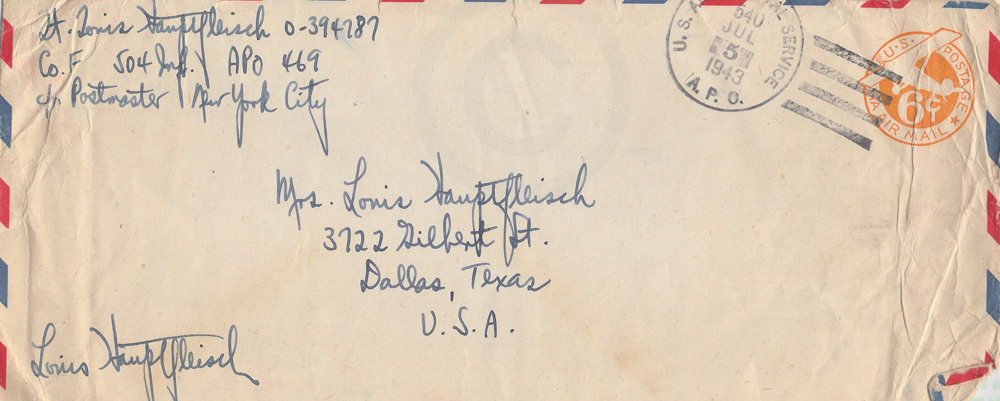 Lt. Louis Hauptfleisch O-394287
Co. F 504 Inf. APO 469
c/o Postmaster New York City
U.S. A SERVICE
540
JUL
5
1943
A. P. O.
U.S. POSTAGE
6¢
VIA AIR MAIL
Mrs. Louis Hauptfleisch
3722 Gilbert St.
Dallas, Texas
U.S.A.
Louis Hauptfleisch